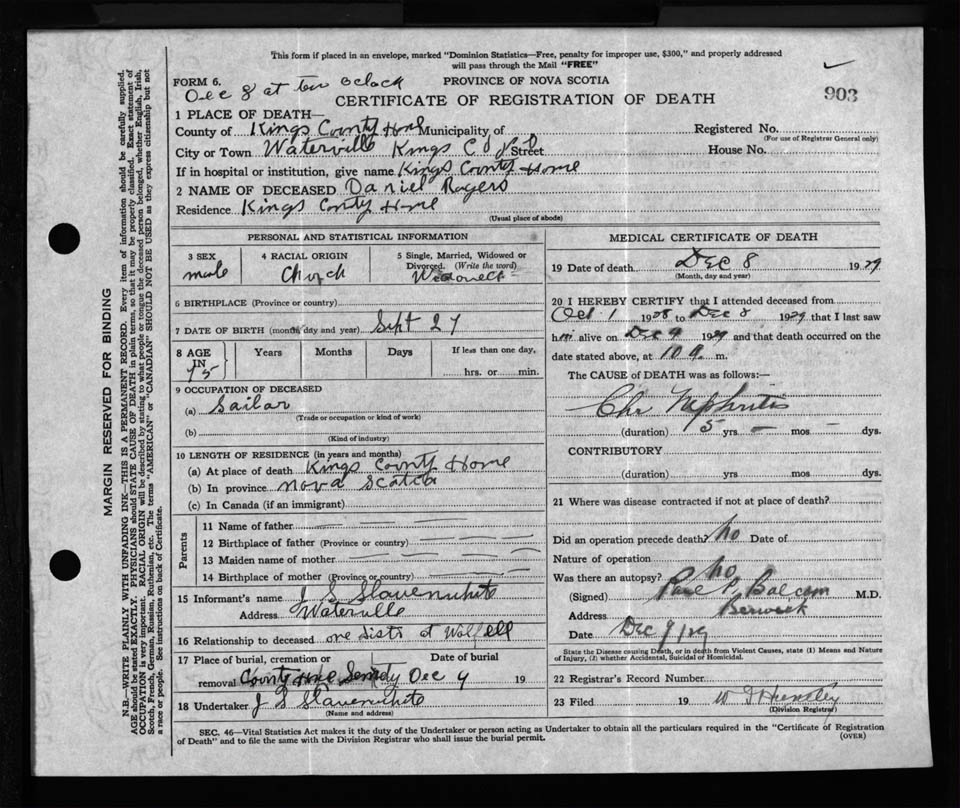 This form if placed in an envelope, marked "Dominion Statistics—Free, penalty for improper use, $300," and properly addressed
will pass through the Mail "FREE"
FORM 6. PROVINCE OF NOVA SCOTIA
Dec 8 at ten oclock
CERTIFICATE OF REGISTRATION OF DEATH 903
1 PLACE OF DEATH—
County of Kings County Home Municipality of Registered No.
(For use of Registrar General only)
City or Town Waterville Kings Co N S Street House No.
If in hospital or institution, give name Kings County Home
2 NAME OF DECEASED Daniel Rogers
Residence Kings Conty Home
(Usual place of abode)
PERSONAL AND STATISTICAL INFORMATION
3 SEX 4 RACIAL ORIGIN 5 Single, Married, Widowed or
Divorced. (Write the word)
male
6 BIRTHPLACE (Province or country)
7 DATE OF BIRTH (month day and year) Sept 27
8 AGE IN Years Months Days If less than one day,
75 hrs. or min.
9 OCCUPATION OF DECEASED
(a) Sailar
(Trade or occupation or kind of work)
(b)
(Kind of industry)
10 LENGTH OF RESIDENCE (in years and months)
(a) At place of death Kings County Home
(b) In province Nova Scotia
(c) In Canada (if an immigrant)
Parents
11 Name of father
12 Birthplace of father (Province or country)
13 Maiden name of mother
14 Birthplace of mother (Province or country)
15 Informant's name J S Slavenwhite
Address Waterville
16 Relationship to deceased
17 Place of burial, cremation or Date of burial
removal County Home Dec 9 19
18 Undertaker J S Slavenwhite
(Name and address)
MEDICAL CERTIFICATE OF DEATH
19 Date of death Dec 8 1929
(Month, day and year)
20 I HEREBY CERTIFY that I attended deceased from
Oct 1 1928 to Dec 8 1929 that I last saw
him alive on Dec 9 1929 and that death occurred on the
date stated above, at 10 a. m.
The CAUSE of DEATH was as follows:—
Chr Nephritis
(duration) 5 yrs — mos — dys.
CONTRIBUTORY
(duration) yrs mos dys.
21 Where was disease contracted if not at place of death?
Did an operation precede death? No Date of
Nature of operation
Was there an autopsy? No
(Signed) Balcom M.D.
Address Berwick
Date Dec 9/29
State the Disease causing Death, or in death from Violent Causes, state (1) Means and Nature
of Injury, (2) whether Accidental, Suicidal or Homicidal.
22 Registrar's Record Number
23 Filed 19
(Division Registrar)
SEC. 46—Vital Statistics Act makes it the duty of the Undertaker or person acting as Undertaker to obtain all the particulars required in the "Certificate of Registration
of Death" and to file the same with the Division Registrar who shall issue the burial permit. (OVER)
MARGIN RESERVED FOR BINDING
N.B.—WRITE PLAINLY WITH UNFADING INK—THIS IS A PERMANENT RECORD. Every item of information should be carefully supplied.
AGE should be stated EXACTLY. PHYSICIANS should STATE CAUSE OF DEATH in plain terms, so that it may be properly classified. Exact statement of
OCCUPATION is very important. RACIAL ORIGIN will be described by stating to what people or tongue the deceased person belonged, whether English, Irish,
Scotch, French, German, Russian, Ruthenian, etc. The terms "AMERICAN" or "CANADIAN" SHOULD NOT BE USED as they express citizenship but not
a race or people. See instructions on back of Certificate.